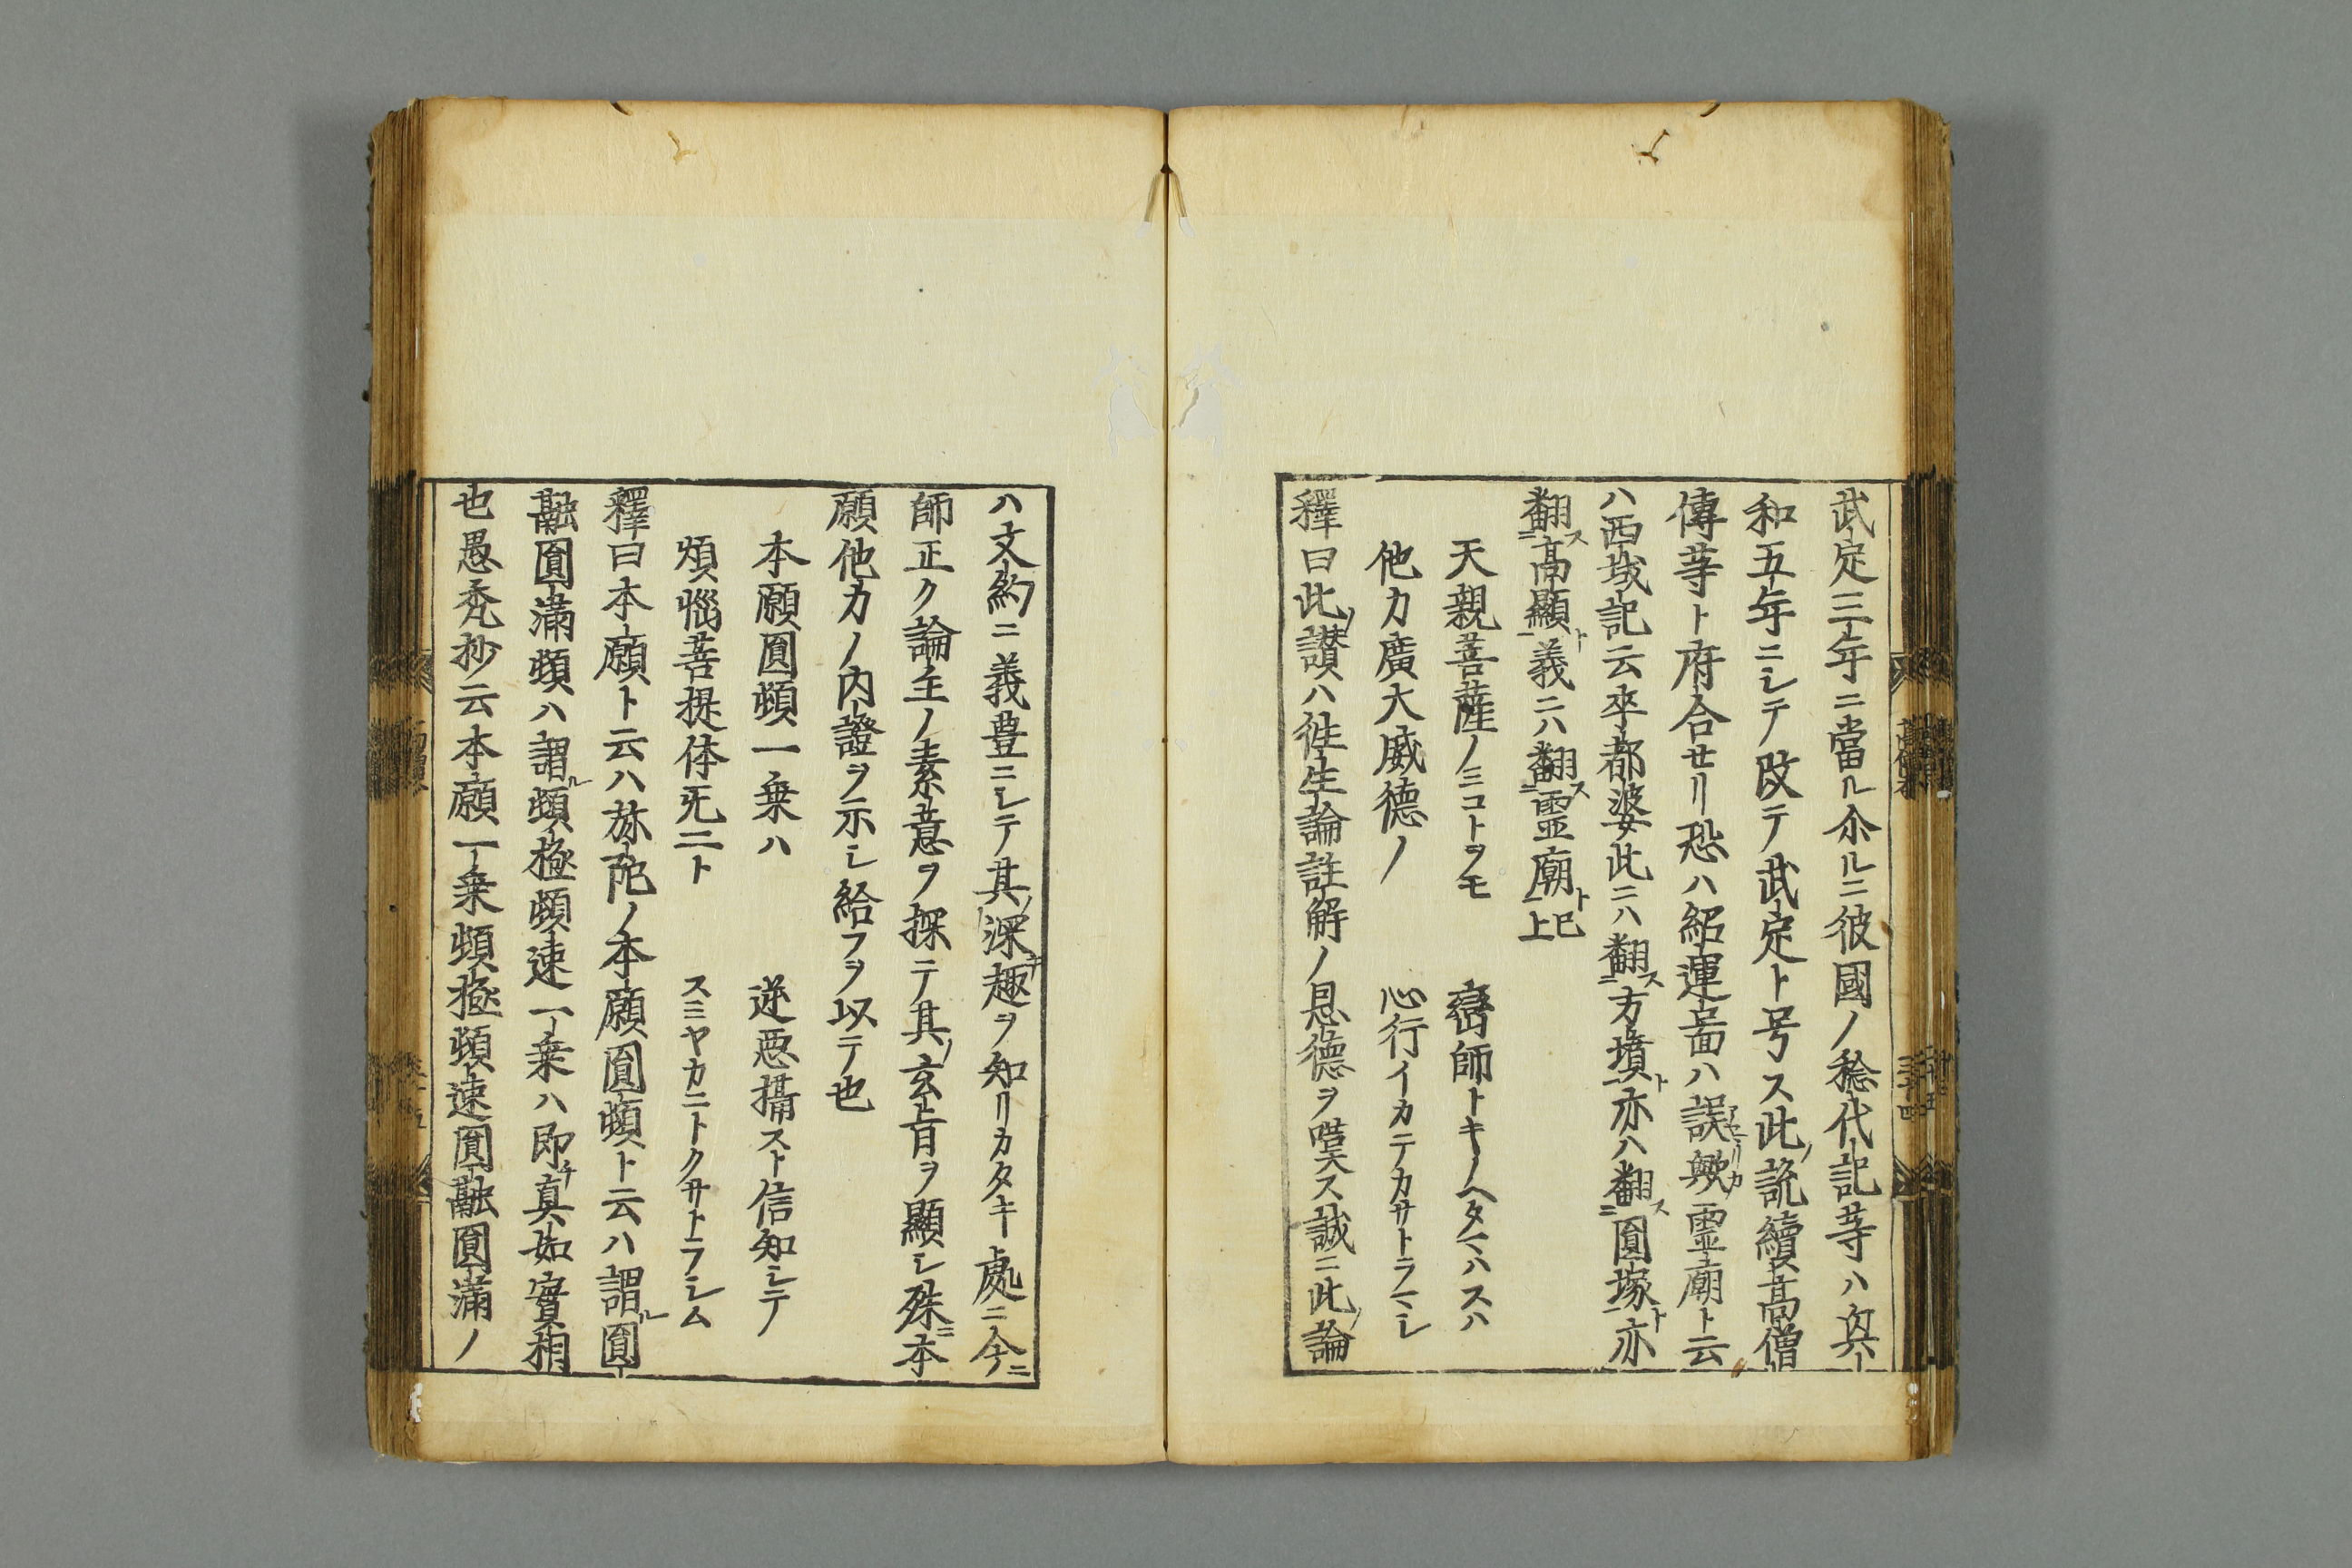 武定三年ニ當ル尒ルニ彼國ノ稔代記等ハ與
和五年ニシテ改テ武定ト号ス此ノ説續高僧
傳等ト府合せリ恐ハ紹運啚ハ誤歟霊廟ト云
ハ西域記云卒都婆此ニハ翻ス方墳ト亦ハ翻ス圓塚ト亦
翻ス高顯ト義ニハ翻ス霊廟ト已上
天親菩薩ノミコトヲモ 鸞師トキノヘタマハスハ
他力廣大威德ノ 心行イカテカサトラマシ
釋曰此ノ讃ハ徃生論註解ノ恩德ヲ嘆ス誠ニ此ノ論
ハ文約ニ義豊ニシテ其ノ深キ趣ヲ知リカタキ處ニ今ニ
師正ク論主ノ素意ヲ探テ其ノ玄旨ヲ顯シ殊ニ本
願他力ノ内證ヲ示シ給フヲ以テ也
本願圓頓一乗ハ 逆悪攝スト信知シテ
煩惱菩提体无二ト スミヤカニトクサトラシム
釋曰本願ト云ハ弥陀ノ本願圓頓ト云ハ謂ル圓
融圓滿頓ハ謂ル頓極頓速一乗ハ即チ真如實相
也愚禿抄云本願一乗頓極頓速圓融圓滿ノ